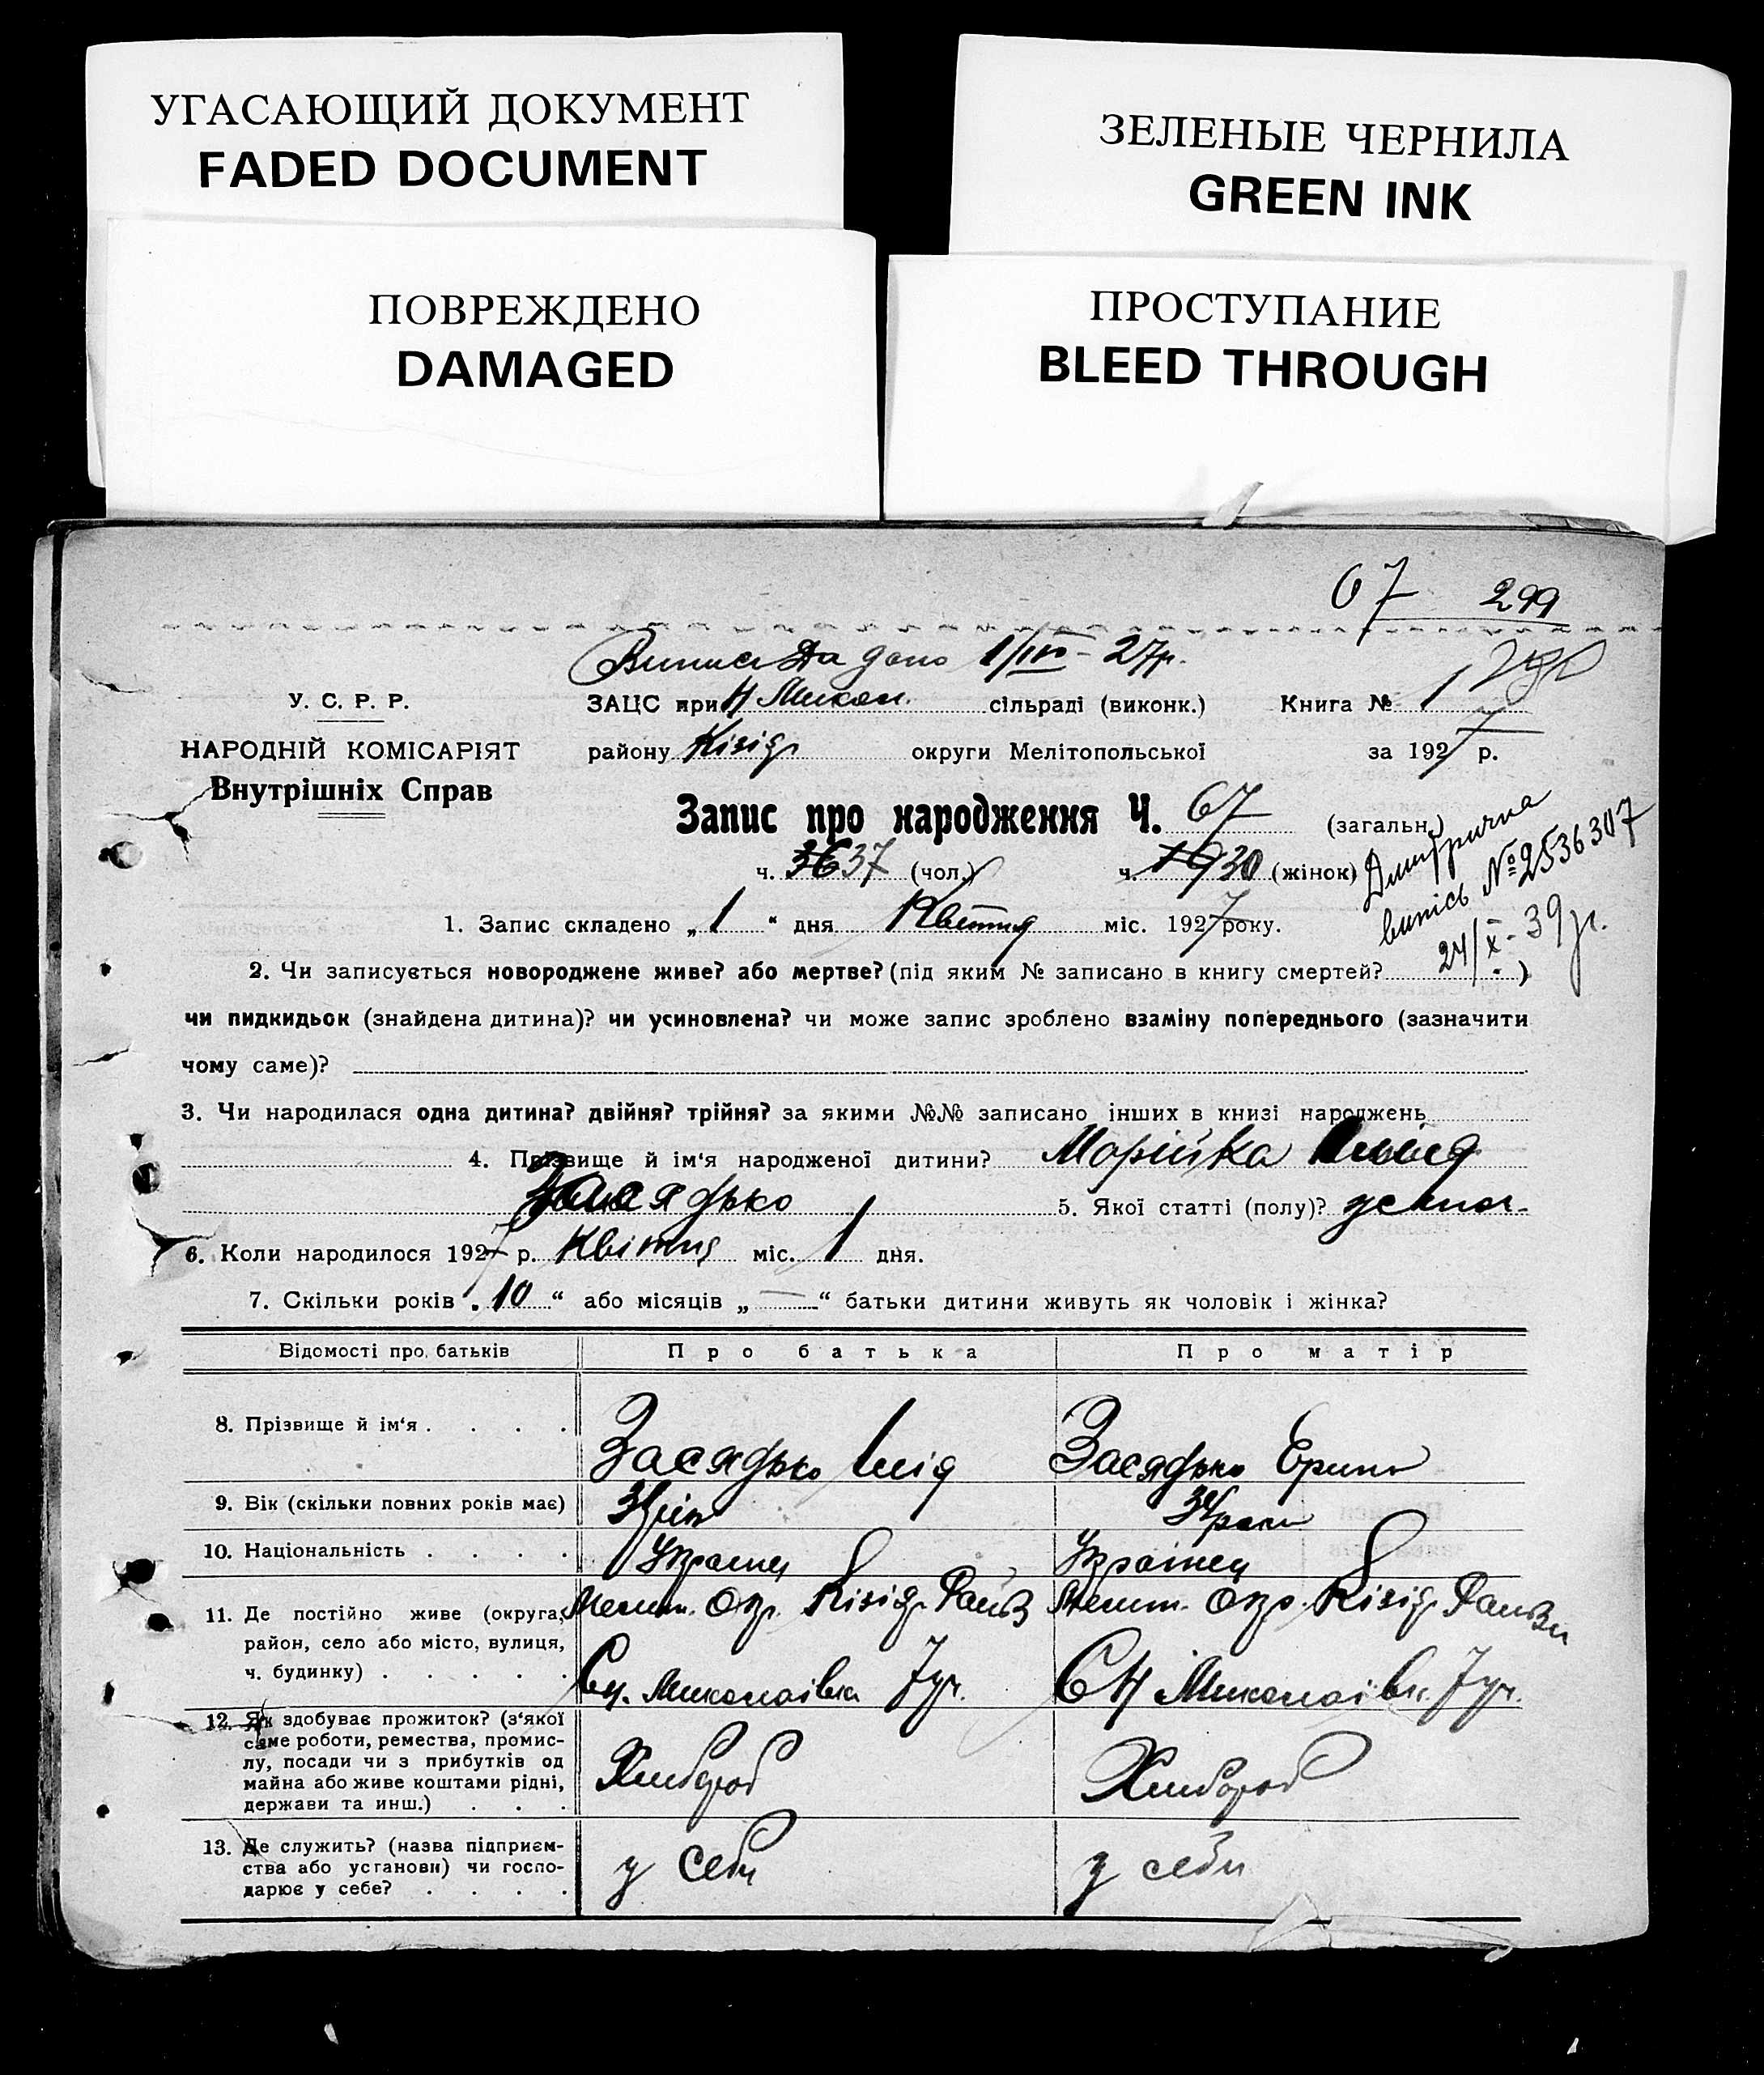 УГАСАЮЩИЙ ДОКУМЕНТ
FADED DOCUMENT
ЗЕЛЕНЫЕ ЧЕРНИЛА
GREEN INK
ПОВРЕЖДЕНО
DAMAGED
ПРОСТУПАНИЕ
BLEED THROUGH
67 299
27р.
У. С. Р. Р.
НАРОДНІЙ КОМІСАРІЯТ
Внутрішніх Справ
ЗАЦС при Н Микол. сільраді (виконк.) Книга № 1
району Кізід округи Мелітопольської за 1927 р.
Запис про народження Ч. 67 (загальн.)
ч. 36 37 (чол.) ч. 19 30 (жінок)
Дмитрична
випісь № 2536307
24/X-39р.
1. Запис складено „1“ дня Квітня міс. 1927 року.
2. Чи записується новороджене живе? або мертве? (під яким № записано в книгу смертей? )
чи пидкидьок (знайдена дитина)? чи усиновлена? чи може запис зроблено взаміну попереднього (зазначити
чому саме)?
3. Чи народилася одна дитина? двійня? трійня? за якими №№ записано інших в книзі народжень
4. Прізвище й ім‘я народженої дитини?
Засядько 5. Якої статті (полу)?
6. Коли народилося 1927 р. Квітня міс. 1 дня.
7. Скільки років „10“ або місяців „—“ батьки дитини живуть як чоловік і жінка?
Відомості про батьків Про батька Про матір
8. Прізвище й ім‘я Засядько Засядько
9. Вік (скільки повних років має)
10. Національність Українец
11. Де постійно живе (округа, Мелит. Окр. Кізід. Мелит. Окр. Кізід.
район, село або місто, вулиця,
ч. будинку) Миколаівка С Н Миколаівк.
12. Як здобуває прожиток? (з‘якої
саме роботи, ремества, промис-
лу, посади чи з прибутків од
майна або живе коштами рідні,
держави та инш.) Хлибороб Хлибороб
13. Де служить? (назва підприєм-
ства або установи) чи госпо-
дарює у себе? у себи у себи